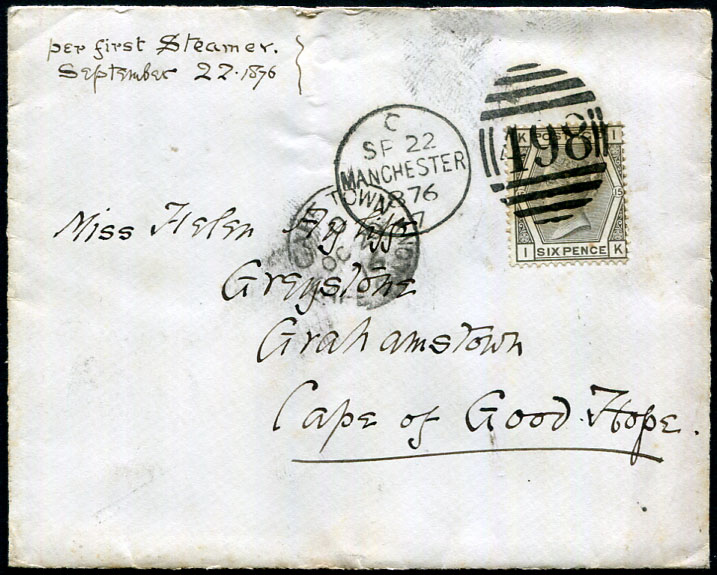 per first Steamer.
September 22. 1876
C
SP 22
MANCHESTER
876
498
K POST I
15
I SIX PENCE K
TOWN
OC
Miss Helen
Greystone
Grahamstown
Cape of Good Hope.